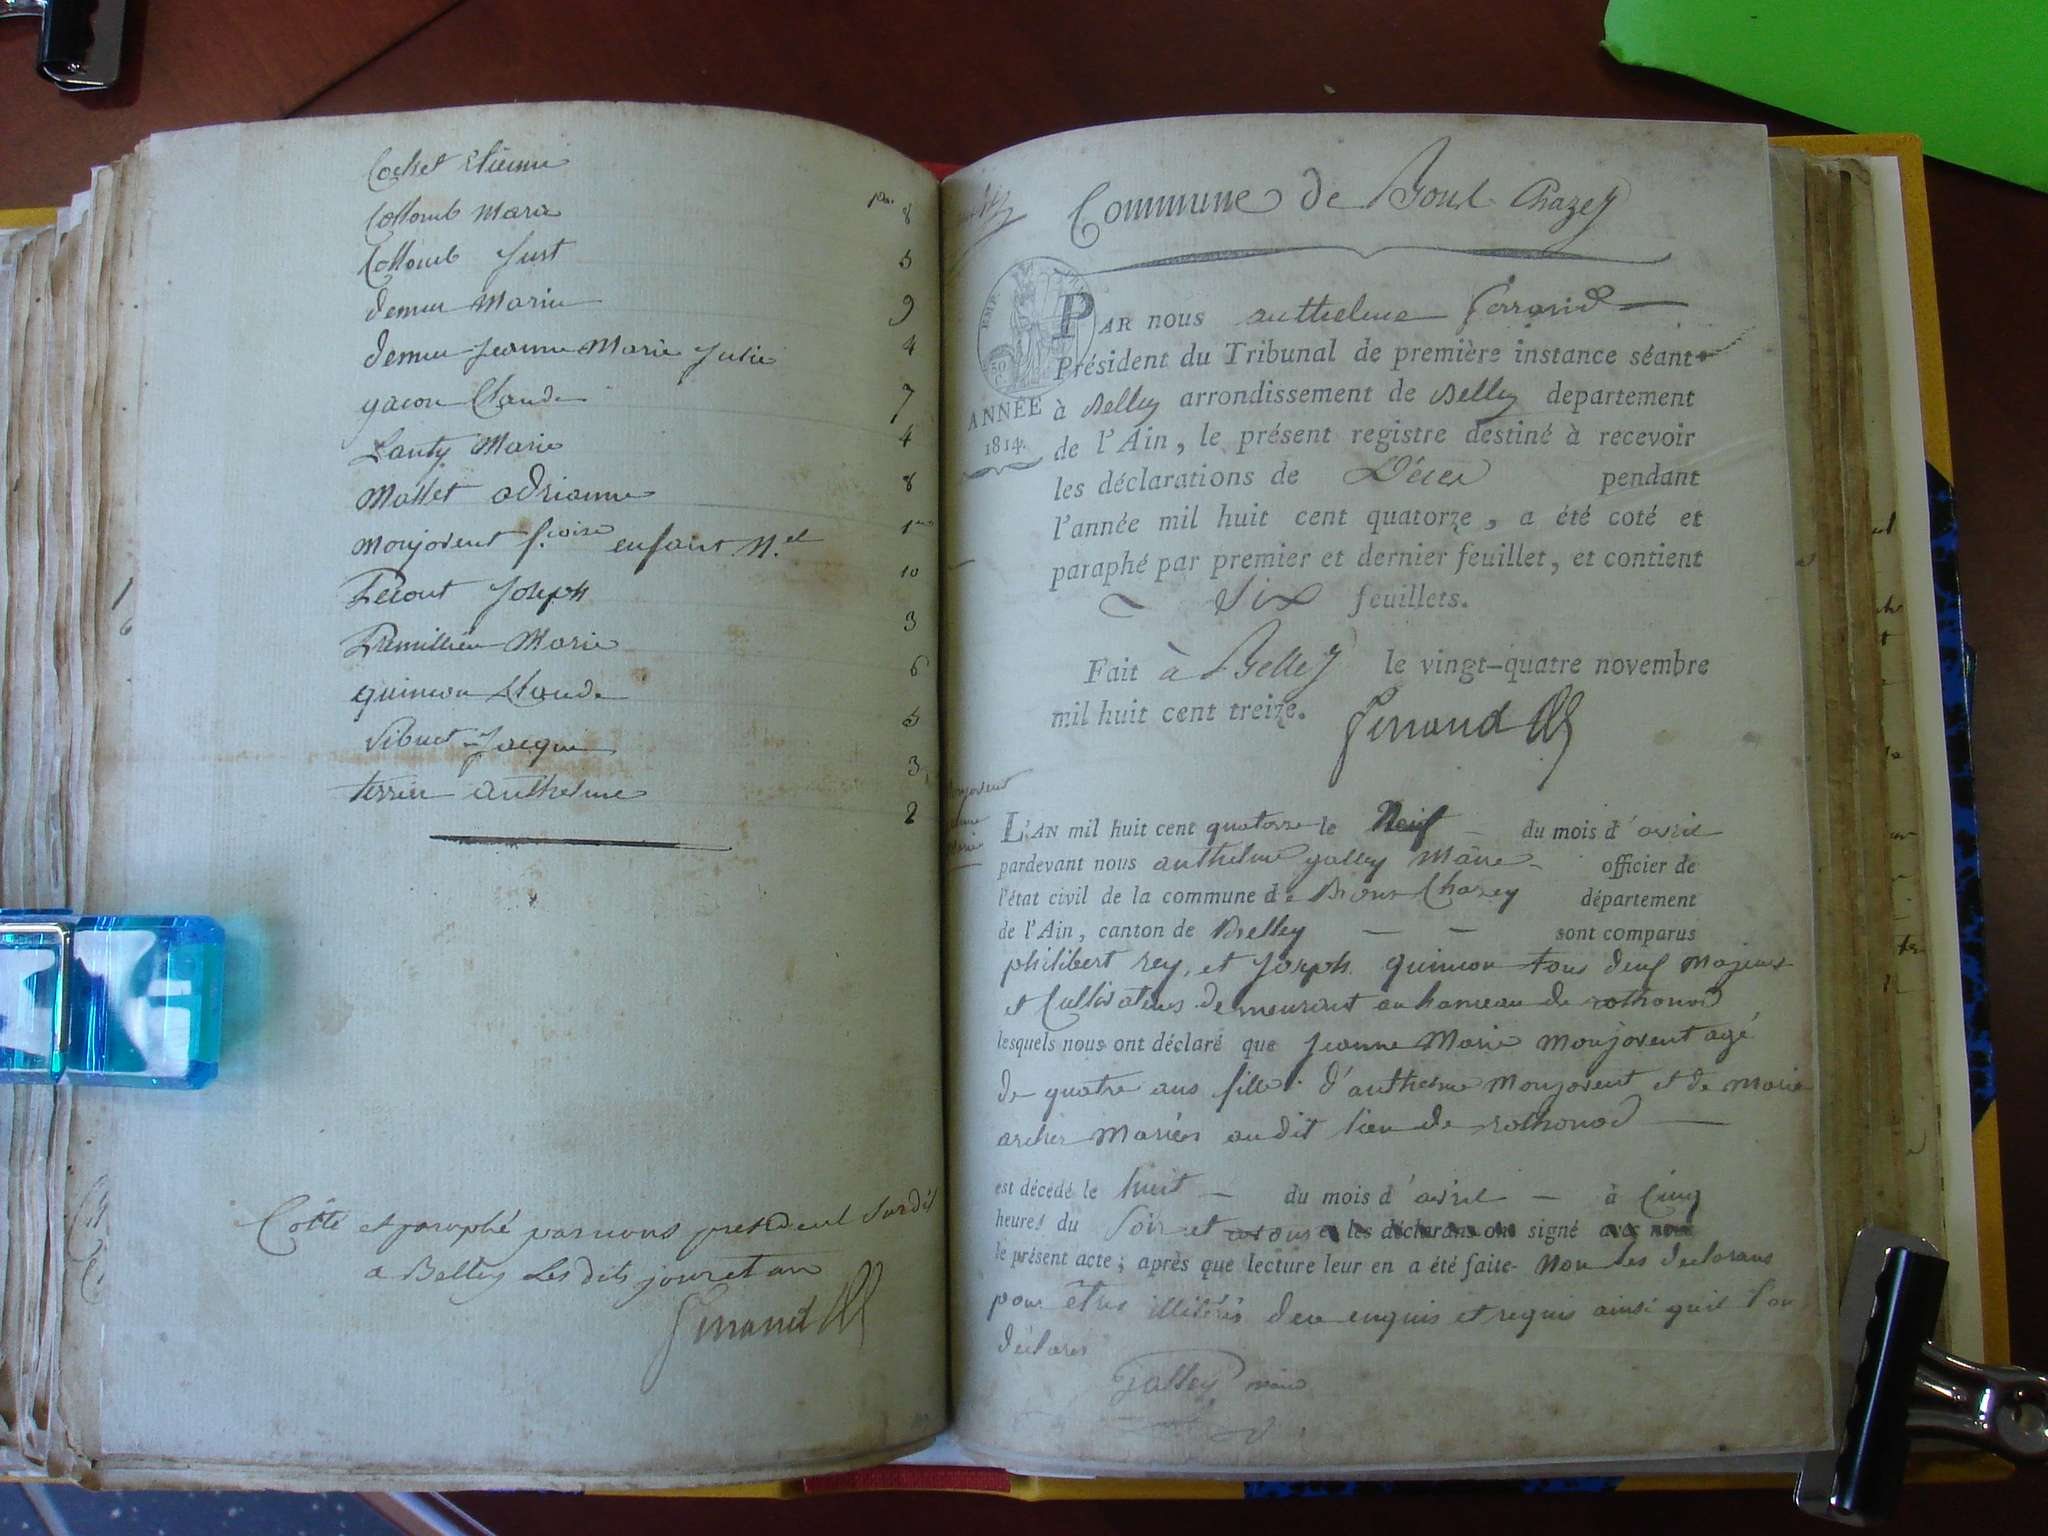 Cochet Etienne
pa. 8
Collomb Marie
5
Collomb Just
9
demeu Marie
4
demeu Jeanne Marie Julie
7
gacon Claude
4
Lanty Marie
8
Mollet adrianne
1
Monjovent f.coise enfant N.el
10
Pecout Joseph
3
Pramillieu Marie
6
quinson Claude
5
Sibuet Jacque
3
terrier anthelme
2
Cotté et paraphé par nous president susdit
a Belley Les dits jour et an
Ferrand
Commune de Bons Chazey
EMP.
50
C.
ANNÉE
1814.
PAR nous anthelme ferrand
Président du Tribunal de première instance séant
à Belley arrondissement de Belley departement
de l'Ain, le présent registre destiné à recevoir
les déclarations de Décès pendant
l'année mil huit cent quatorze, a été coté et
paraphé par premier et dernier feuillet, et contient
Six feuillets.
Fait à Belley le vingt-quatre novembre
mil huit cent treize. Ferrand
Monjovent
Jeanne
Marie
L'AN mil huit cent quatorze le Neuf du mois d'avril
pardevant nous anthelme galley Maire officier de
l'état civil de la commune de Bons Chazey département
de l'Ain, canton de Belley sont comparus
philibert rey, et Joseph quinson tous deux majeurs
et Cultivateurs demeurant au hameau de rothonod
lesquels nous ont déclaré que Jeanne Marie Monjovent agé
de quatre ans fille d'anthelme Monjovent et de Marie
archer Mariés au dit lieu de rothonod
est décédé le huit du mois d'avril à Cinq
heures du Soir et avons et les déclarans ont signé avec nous
le présent acte; après que lecture leur en a été faite Non les declarans
pour être illitérés de ce enquis et requis ainsi quil l'on
déclarés
Galley maire